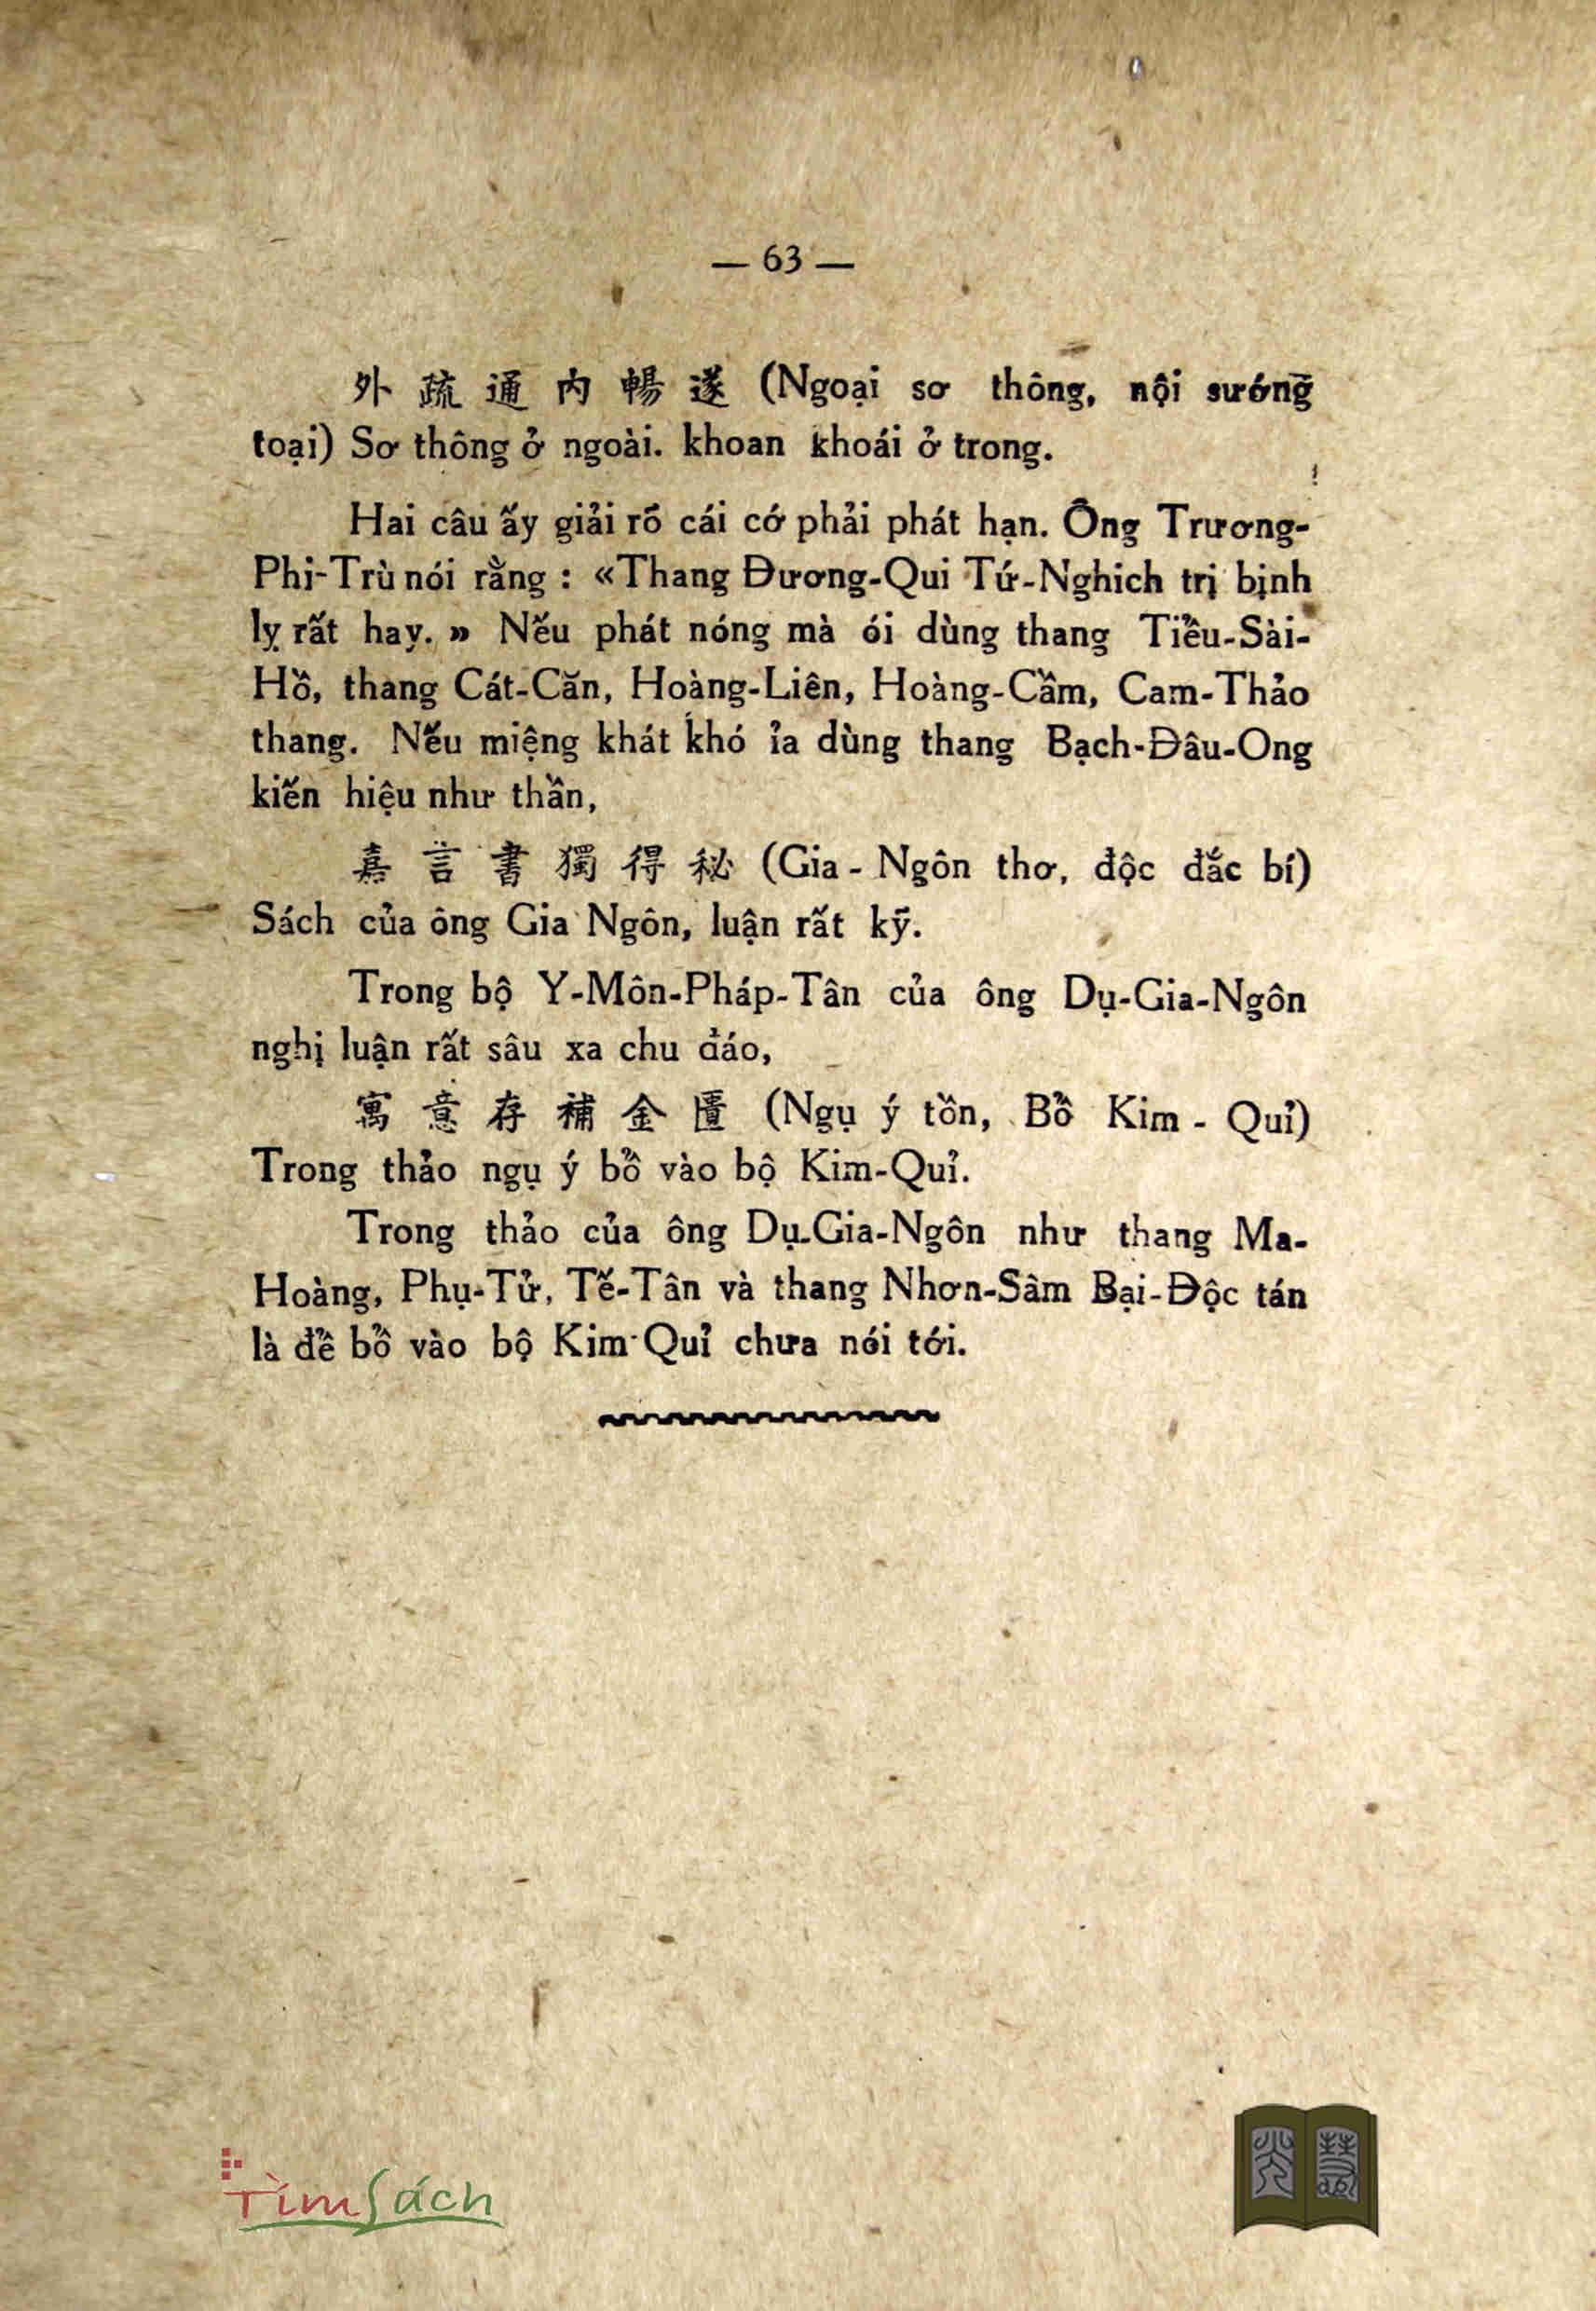 — 63 —
外疏通內暢遂 (Ngoại sơ thông, nội sướng
toại) Sơ thông ở ngoài. khoan khoái ở trong.
Hai câu ấy giải rõ cái cớ phải phát hạn. Ông Trương-
Phi-Trù nói rằng : «Thang Đương-Qui Tứ-Nghich trị bịnh
lỵ rất hay. » Nếu phát nóng mà ói dùng thang Tiều-Sài-
Hồ, thang Cát-Căn, Hoàng-Liên, Hoàng-Cầm, Cam-Thảo
thang. Nếu miệng khát khó ỉa dùng thang Bạch-Đâu-Ong
kiến hiệu như thần,
嘉言書獨得秘 (Gia - Ngôn thơ, độc đắc bí)
Sách của ông Gia Ngôn, luận rất kỹ.
Trong bộ Y-Môn-Pháp-Tân của ông Dụ-Gia-Ngôn
nghị luận rất sâu xa chu đáo,
寓意存補金匱 (Ngụ ý tồn, Bồ Kim - Quỉ)
Trong thảo ngụ ý bồ vào bộ Kim-Quỉ.
Trong thảo của ông Dụ-Gia-Ngôn như thang Ma-
Hoàng, Phụ-Tử, Tế-Tân và thang Nhơn-Sâm Bại-Độc tán
là đề bồ vào bộ Kim-Quỉ chưa nói tới.
TìmSách